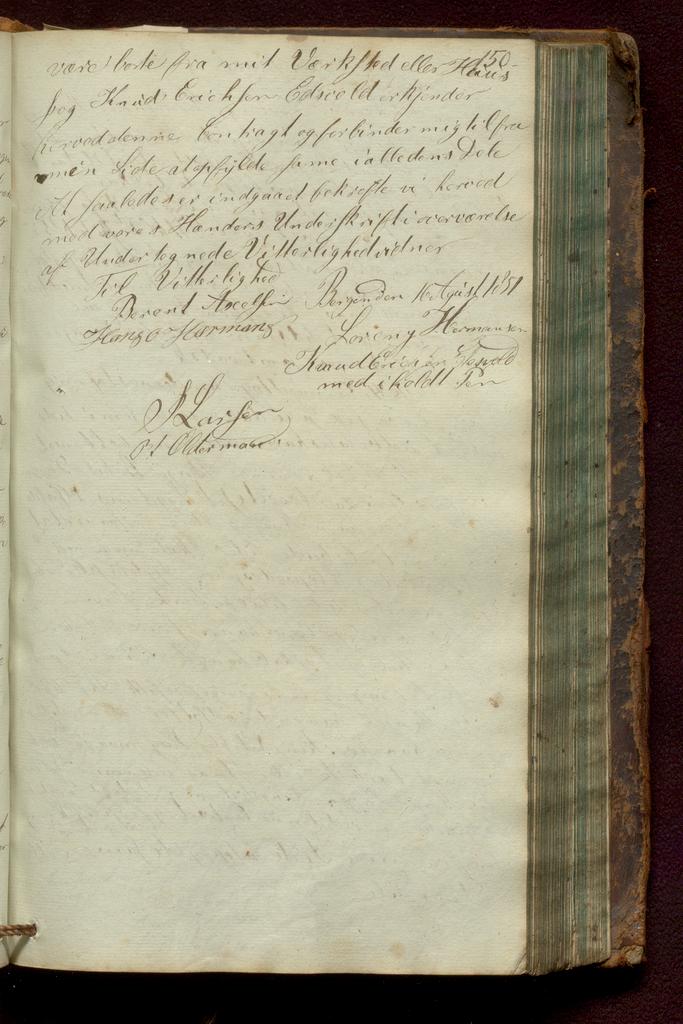 150
være borte fra mit Værksted eller Huus
Jeg Knud Erichsen Edsvold erkjender
herved denne Contragt og forbinder mig til fra
min Side at opfylde samme i alle dens Dele
At saaledes er indgaaet bekræfte vi herved
med vores Hænders Underskrift i overværelse
af Undertegnede Vitterlighedsvidner
Til Vitterlighed
Bergen den 16 August 1851
Berent Axelsen
Hans O Hermans
Lorens Hermansen
Knud Ericsen
med iholdt Pen
Larsen
Olderman